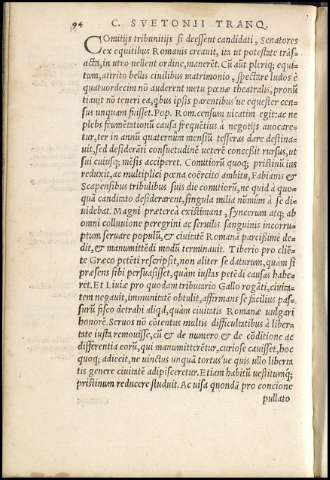 94 C. SVETONII TRANQ.
COmitijs tribunitijs si deessent candidati, Senatores
ex equitibus Romanis creauit, ita ut potestate trãs/
acta, in utro uellent ordine, manerẽt. Cũ aũt pleriq; equi/
tum, attrito bellis ciuilibus matrimonio, spectare ludos è
quatuordecim nõ auderent metu pœnæ theatralis, pronũ
tiauit nõ teneri ea, quibus ipsis parentibus ue equester cen=
sus unquam fuisset. Pop. Rom. censum uicatim egit: ac ne
plebs frumẽtationũ causa frequẽtius à negotijs auocare=
tur, ter in annũ quaternum mensiũ tesseras dare destina=
uit, sed desiderãti consuetudinẽ ueterẽ concessit rursus, ut
sui cuiusq; mẽsis acciperet. Comitiorũ quoq; pristinũ ius
reduxit, ac multiplici pœna coërcito ambitu, Fabianis &
Scapensibus tribulibus suis die comitiorũ, ne quid à quo=
quã candidato desiderarent, singula milia nũmũ à se di=
uidebat. Magni præterea existimans, syncerum atq; ab
omni colluuione peregrini ac seruilis sanguinis incorru=
ptum seruare populũ, & ciuitatẽ Romanã parcissimè de=
dit, & manumittẽdi modũ terminauit. Tiberio pro cliẽ=
te Græco petẽti rescripsit, non aliter se daturum, quàm si
præsens sibi persuasisset, quàm iustas petẽdi causas habe=
ret. Et Liuiæ pro quodam tributario Gallo rogãti, ciuita
tem negauit, immunitatẽ obtulit, affirmans se facilius pas=
surũ fisco detrahi aliqd, quàm ciuitatis Romanæ uulgari
honorẽ. Seruos nõ cõtentus multis difficultatibus à liber=
tate iusta remouisse, cũ & de numero & de cõditione ac
differentia eorũ, qui manumitterẽtur, curiose cauisset, hoc
quoq; adiecit, ne uinctus unquã tortus'ue quis ullo liberta
tis genere ciuitatẽ adipisceretur. Etiam habitũ uestitumq;
pristinum reducere studuit. Ac uisa quondã pro concione
pullato